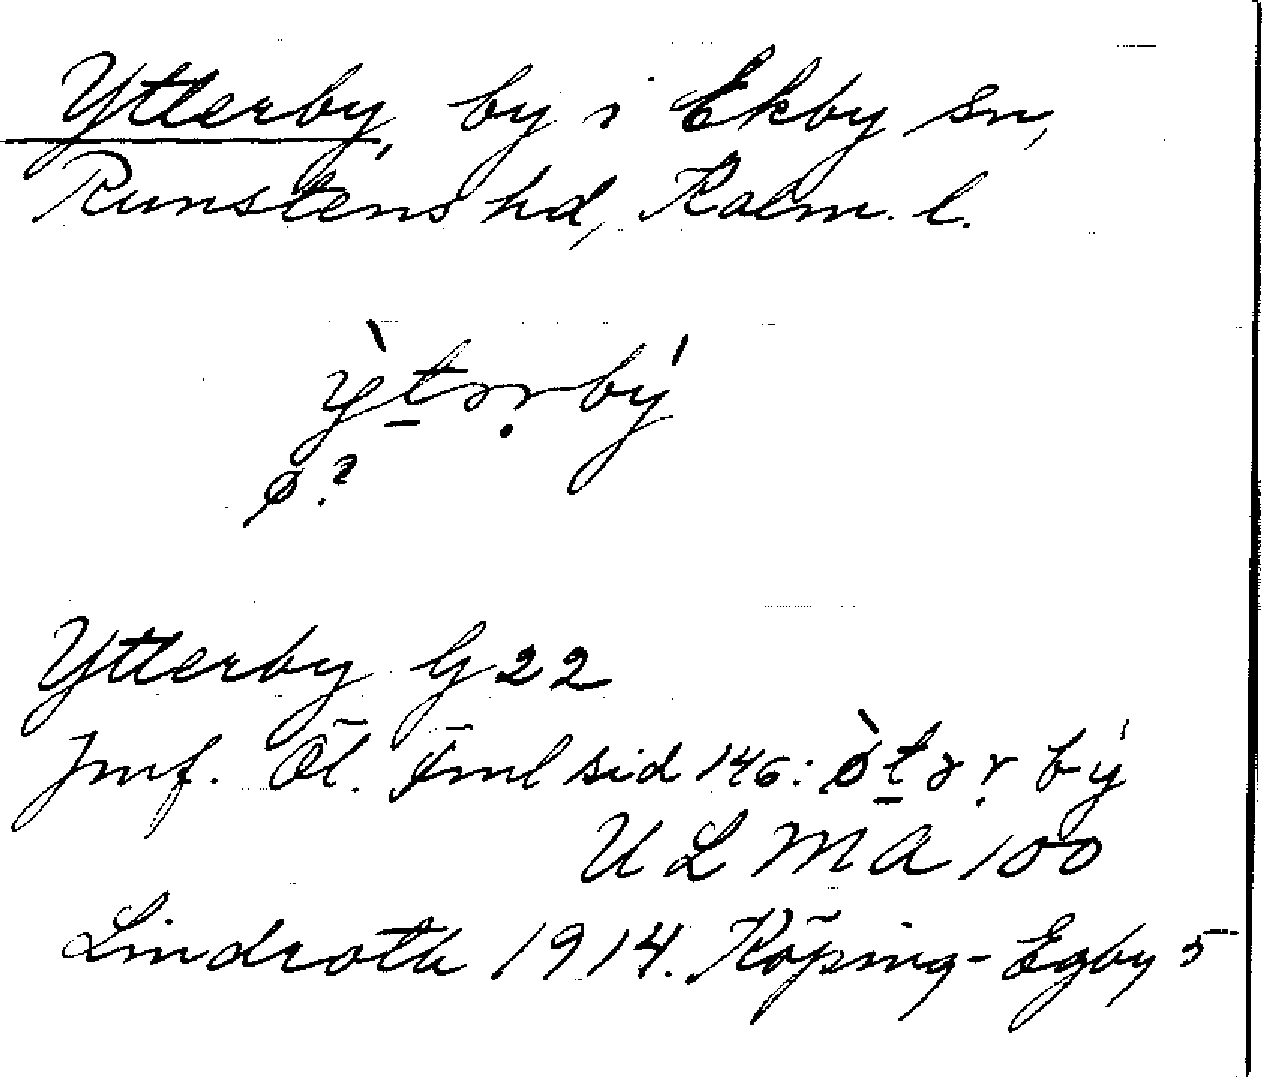 Ytterby, by i Ekby sn,
Runstens hd, Kalm. l.
ỳtəṛbý
ø?
Ytterby G 22
Jmf. Öl. Fml sid 146: ø̀təṛbý
ULMA 100
Lindroth 1914. Köping-Egby 5